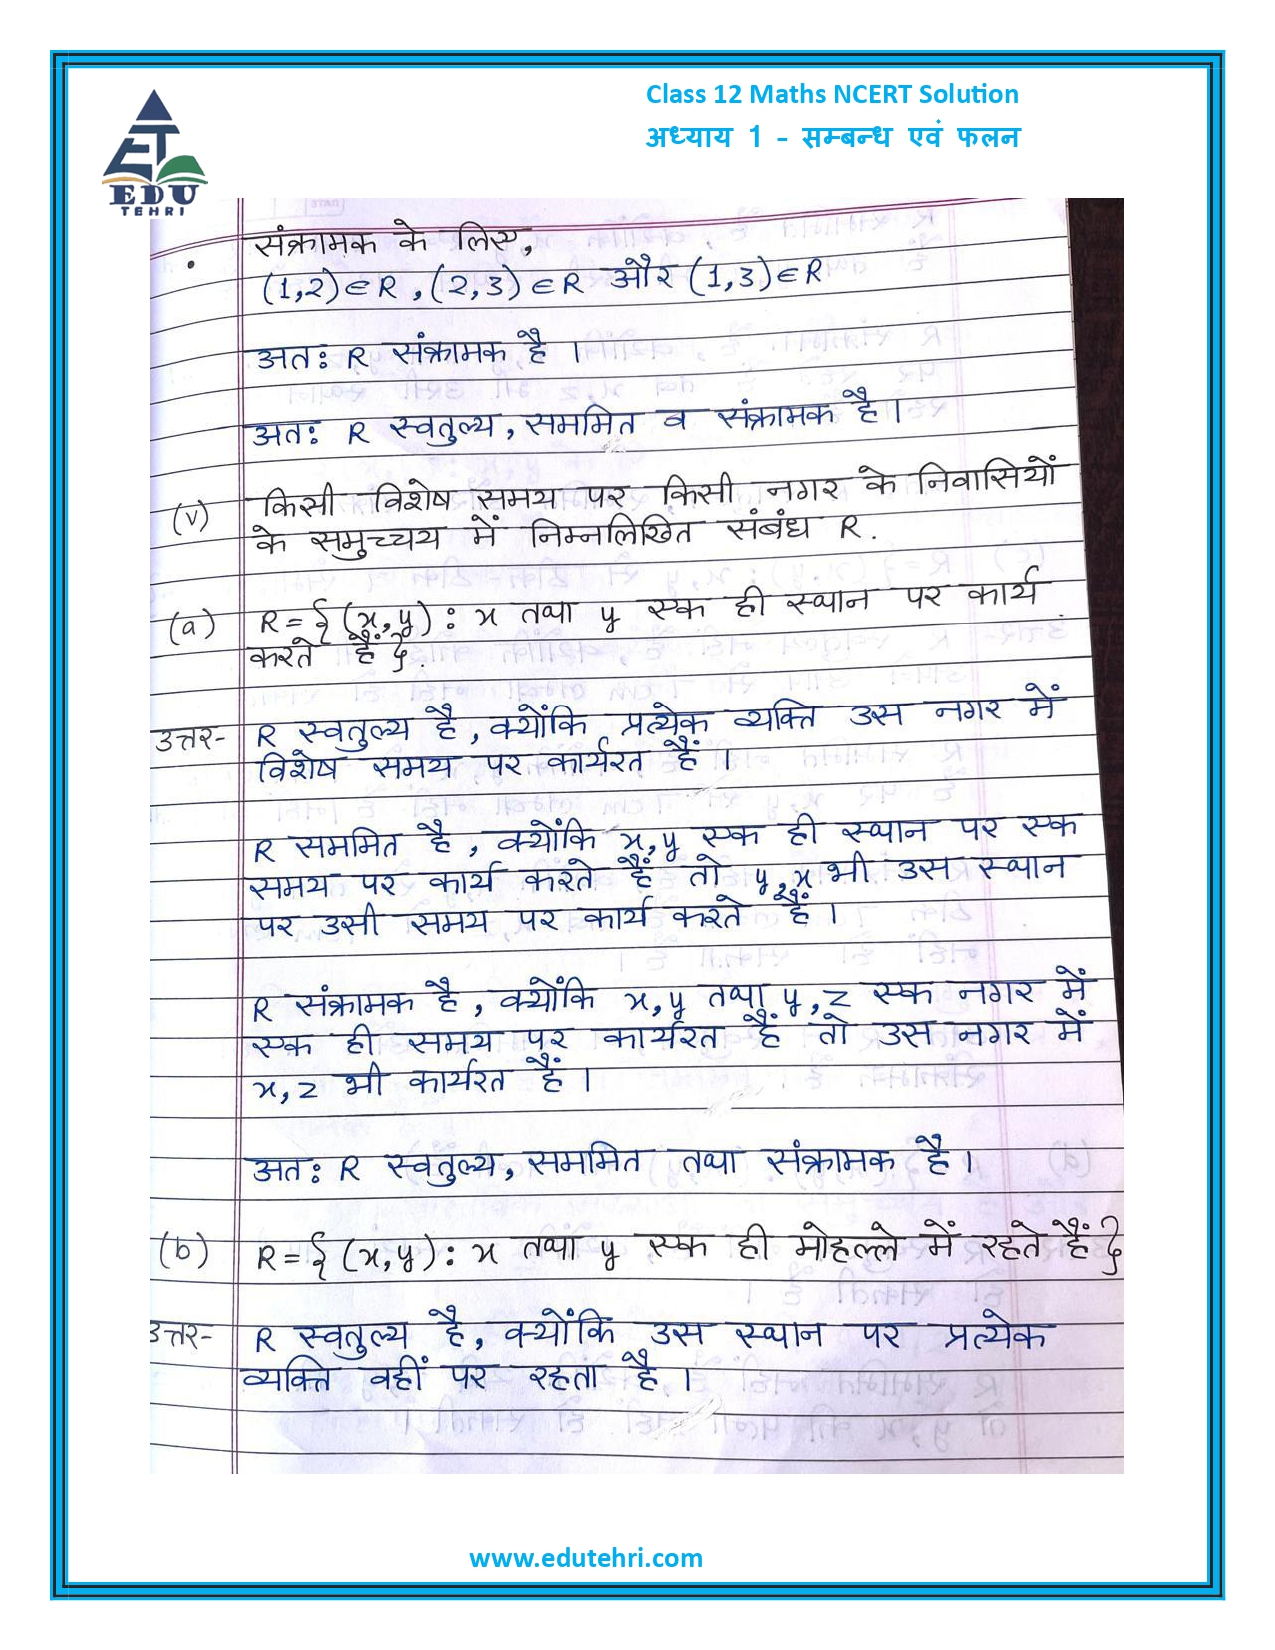 Class 12 Maths NCERT Solution
अध्याय 1 - सम्बन्ध एवं फलन
ET
EDU
TEHRI
संक्रामक के लिए,
(1,2)∈R ,(2,3)∈R और (1,3)∈R
अतः R संक्रामक है ।
अतः R स्वतुल्य, सममित व संक्रामक है।
(v) किसी विशेष समय पर किसी नगर के निवासियों
के समुच्चय में निम्नलिखित संबंध R.
(a) R={(x,y): x तथा y एक ही स्थान पर कार्य
करते हैं}.
उत्तर- R स्वतुल्य है, क्योंकि प्रत्येक व्यक्ति उस नगर में
विशेष समय पर कार्यरत हैं ।
R सममित है, क्योंकि x,y एक ही स्थान पर एक
समय पर कार्य करते हैं तो y,x भी उस स्थान
पर उसी समय पर कार्य करते हैं ।
R संक्रामक है, क्योंकि x,y तथा y,z एक नगर में
एक ही समय पर कार्यरत हैं तो उस नगर में
x,z भी कार्यरत हैं ।
अतः R स्वतुल्य, सममित तथा संक्रामक है ।
(b) R={(x,y): x तथा y एक ही मोहल्ले में रहते हैं}
उत्तर- R स्वतुल्य है, क्योंकि उस स्थान पर प्रत्येक
व्यक्ति वहीं पर रहता है ।
www.edutehri.com